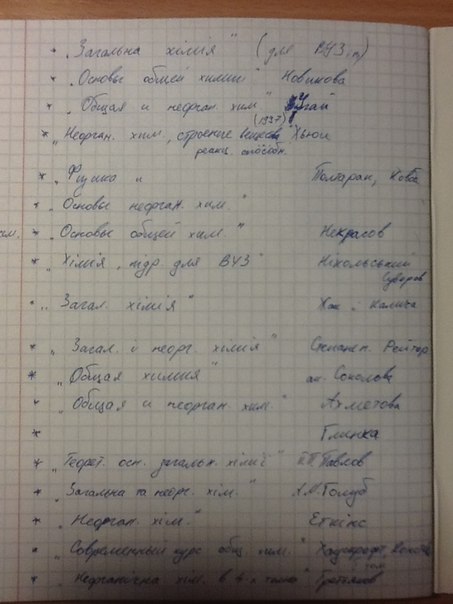 * „Загальна хімія" (для ВУЗ.ів)
* „Основы общей химии" Новикова
* „Общая и неорган. хим" Угай
(1937)
* „Неорган. хим, строение вещества Хьюи
реакц. способн.
* „Физика и Полторак, Ковба
* „Основы неорган. хим."
* „Основы общей хим." Некрасов
* „Хімія, підр. для ВУЗ" Нікольський
Суворов
* „Загал. хімія" і Калита
* „Загал. і неорг. хімія" Рейтер
* „Общая химия" Соколова
* „Общая и неорган. хим." Ахметова
* Глинка
* „Теорет. осн. загальн. хімії" Павлов
* „Загальна та неорг. хім." А.М. Голуб
* „Неорган. хім." Еткінс
* „Современный курс общ. хим."
* „Неорганична хим. в 4-х томах" Третьяков